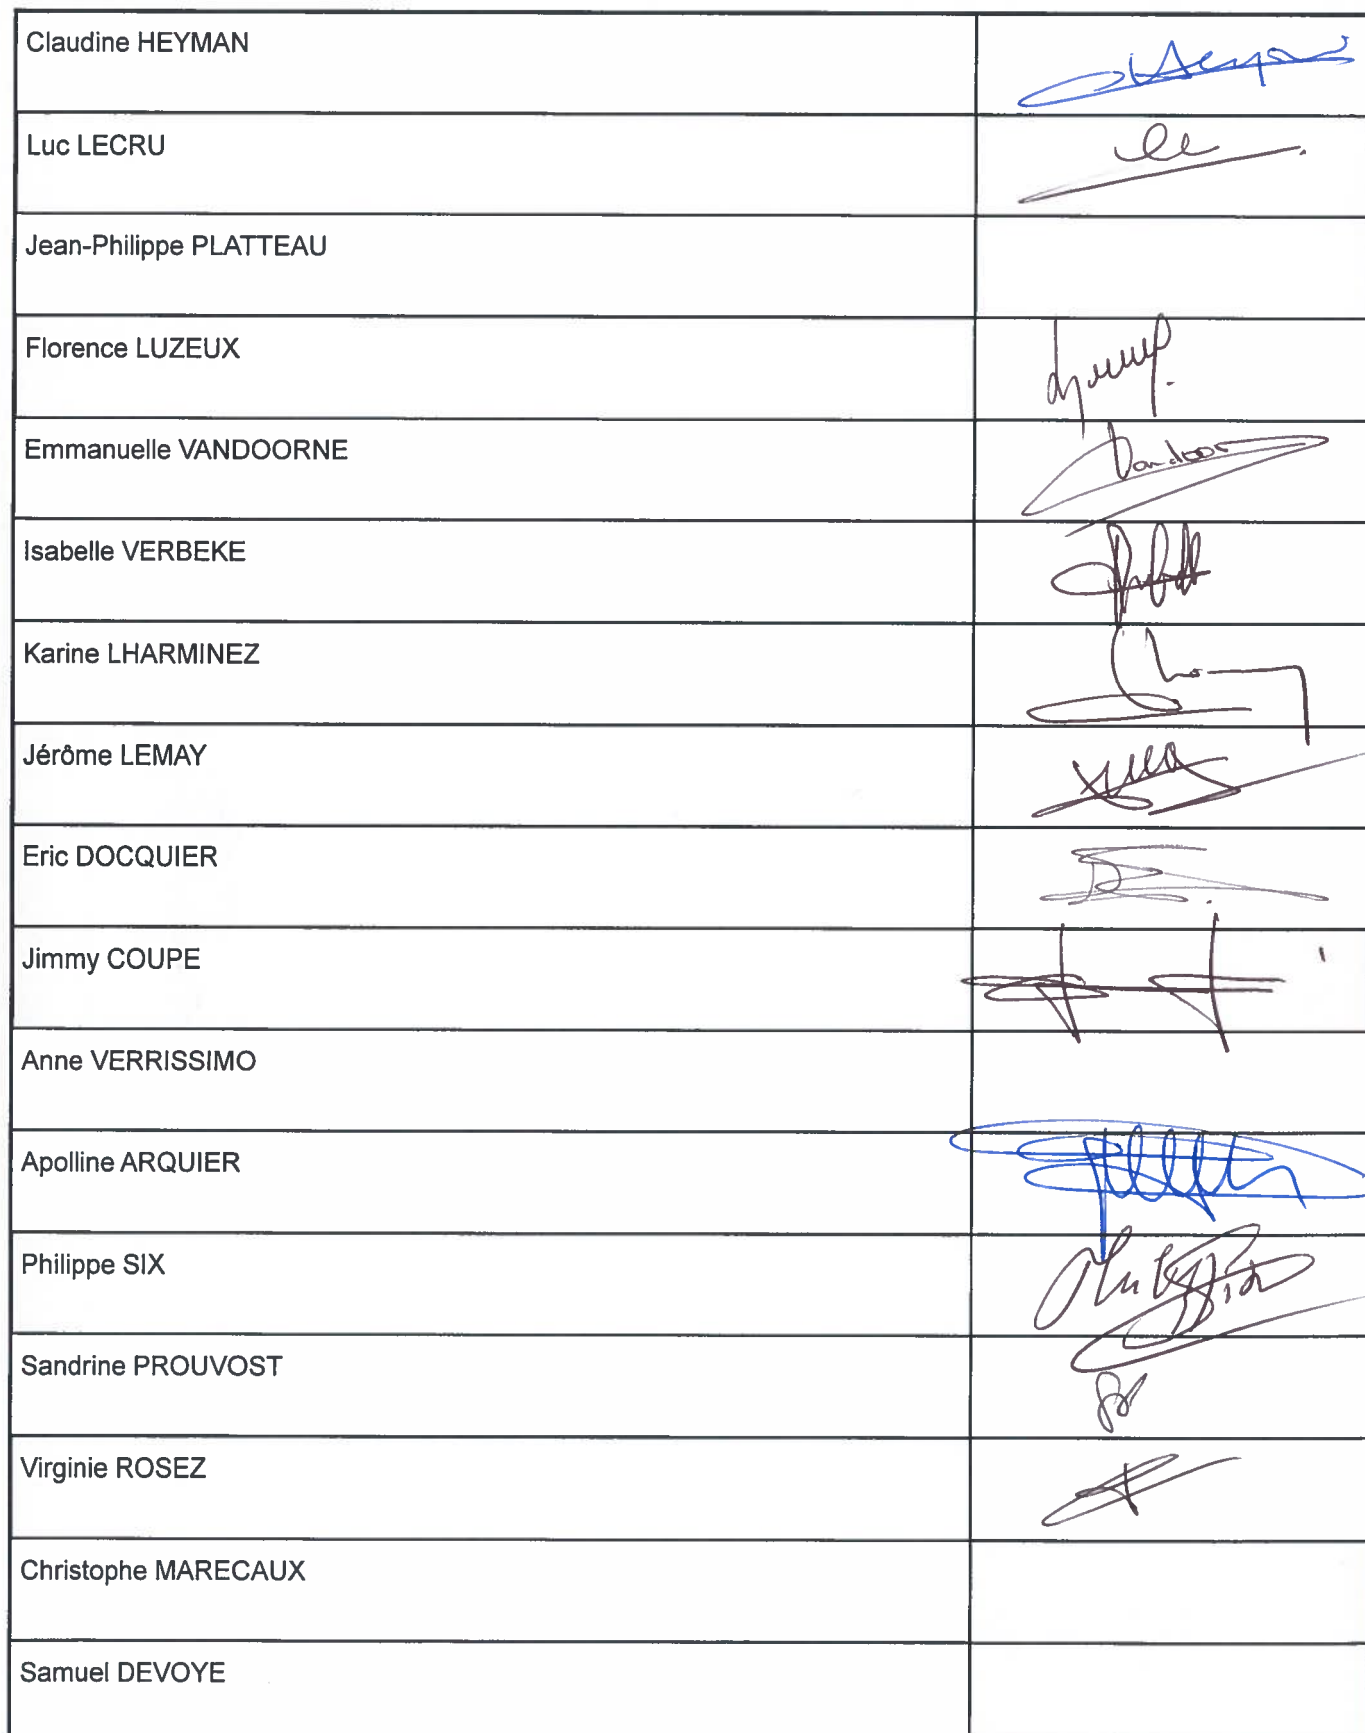 Claudine HEYMAN
Luc LECRU
Jean-Philippe PLATTEAU
Florence LUZEUX
Emmanuelle VANDOORNE
Isabelle VERBEKE
Karine LHARMINEZ
Jérôme LEMAY
Eric DOCQUIER
Jimmy COUPE
Anne VERRISSIMO
Apolline ARQUIER
Philippe SIX
Sandrine PROUVOST
Virginie ROSEZ
Christophe MARECAUX
Samuel DEVOYE